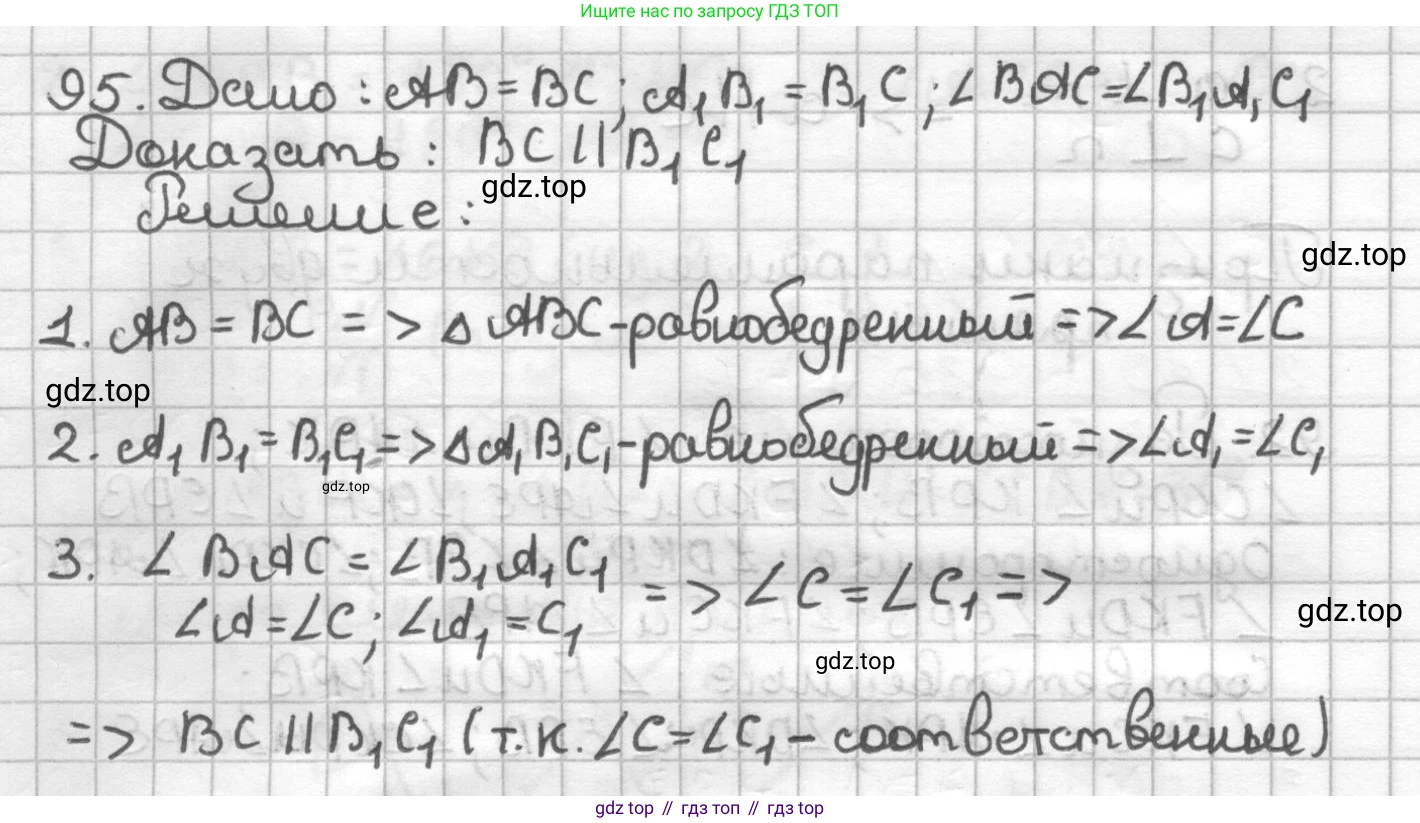 Ищите нас по запросу ГДЗ ТОП
95. Дано: AB = BC; A₁B₁ = B₁C; ∠BAC = ∠B₁A₁C₁
Доказать: BC || B₁C₁
gdz.top
Решение:
gdz.top
1. AB = BC => △ABC - равнобедренный => ∠A = ∠C
gdz.top
2. A₁B₁ = B₁C₁ => △A₁B₁C₁ - равнобедренный => ∠A₁ = ∠C₁
gdz.top
3. ∠BAC = ∠B₁A₁C₁
∠A = ∠C; ∠A₁ = C₁ => ∠C = ∠C₁ =>
gdz.top
gdz.top
=> BC || B₁C₁ (т.к. ∠C = ∠C₁ - соответственные)
gdz top // гдз топ // gdz top